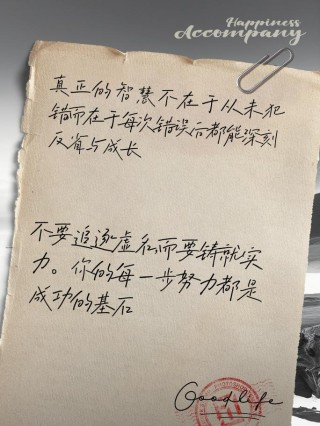 Happiness
Accompany
真正的智慧不在于从未犯
错而在于每次错误后都能深刻
反省与成长
不要追逐虚名而要铸就实
力。你的每一步努力都是
成功的基石
Goodlife